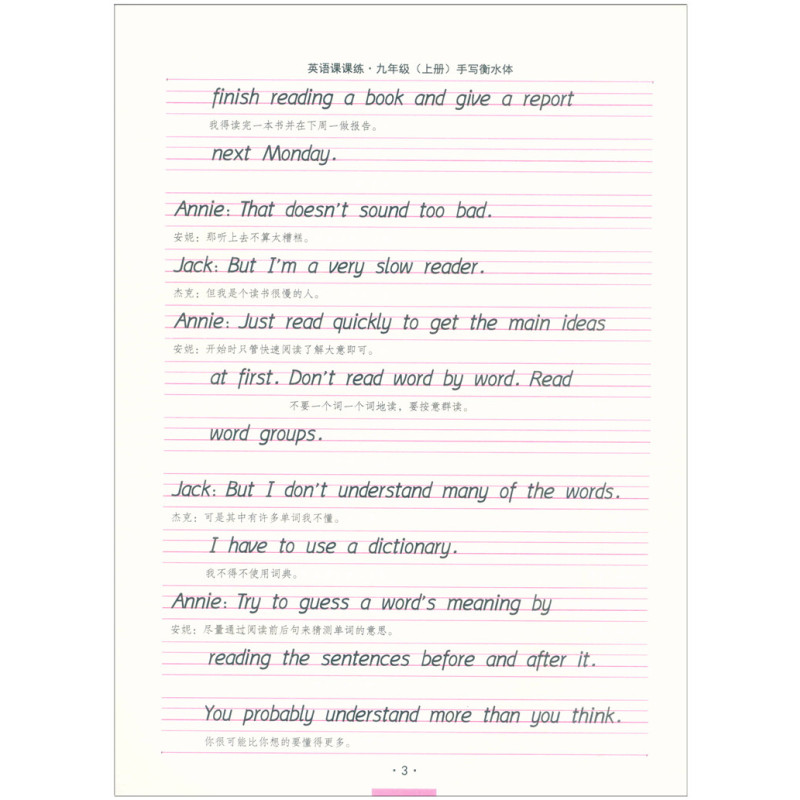 英语课课练·九年级（上册）手写衡水体
finish reading a book and give a report
我得读完一本书并在下周一做报告。
next Monday.
Annie: That doesn't sound too bad.
安妮：那听上去不算太糟糕。
Jack: But I'm a very slow reader.
杰克：但我是个读书很慢的人。
Annie: Just read quickly to get the main ideas
安妮：开始时只管快速阅读了解大意即可。
at first. Don't read word by word. Read
不要一个词一个词地读，要按意群读。
word groups.
Jack: But I don't understand many of the words.
杰克：可是其中有许多单词我不懂。
I have to use a dictionary.
我不得不使用词典。
Annie: Try to guess a word's meaning by
安妮：尽量通过阅读前后句来猜测单词的意思。
reading the sentences before and after it.
You probably understand more than you think.
你很可能比你想的要懂得更多。
·3·